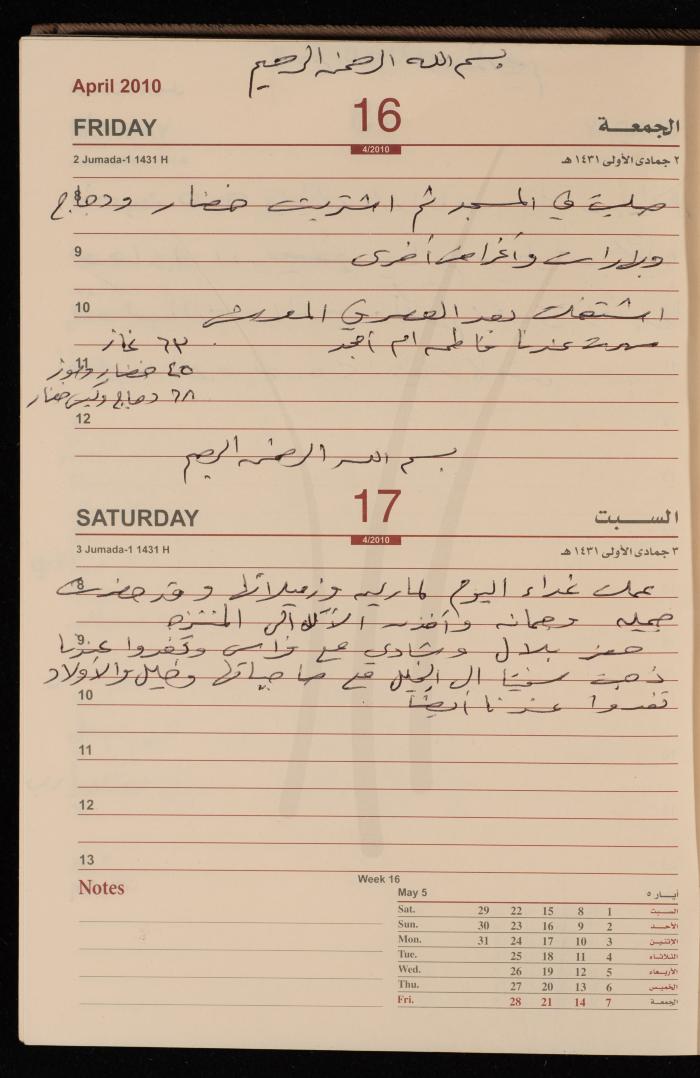 بسم الله الرحمن الرحيم
April 2010
FRIDAY 16 الجمعة
4/2010
2 Jumada-1 1431 H ٢ جمادى الأولى ١٤٣١ هـ
8 صليت في المسجد ثم اشتريت خضار ودجاج
9 وأغراض أخرى
10 اشتغلت بعد العصر في
سهرت عندنا فاطمه ام أمجد
٦٣ غاز
11 ٤٥ خضار
٦٨ دجاج وكيس خضار
12
بسم الله الرحمن الرحيم
SATURDAY 17 السبت
4/2010
3 Jumada-1 1431 H ٣ جمادى الأولى ١٤٣١ هـ
8 عملت غداء اليوم لماريه وزميلاتها وقد حضرت
جميله وجمانه وأخذت الأكل الى المنتزه
9 حضر بلال وشادي مع فراس وتغدوا عندنا
ذهبت الى الخليل مع صاحباتها والأولاد
10 تغدوا عندنا أيضاً
11
12
13
Notes
Week 16
May 5 أيـار ٥
Sat. 29 22 15 8 1 السبت
Sun. 30 23 16 9 2 الأحد
Mon. 31 24 17 10 3 الاثنين
Tue. 25 18 11 4 الثلاثاء
Wed. 26 19 12 5 الأربعاء
Thu. 27 20 13 6 الخميس
Fri. 28 21 14 7 الجمعة